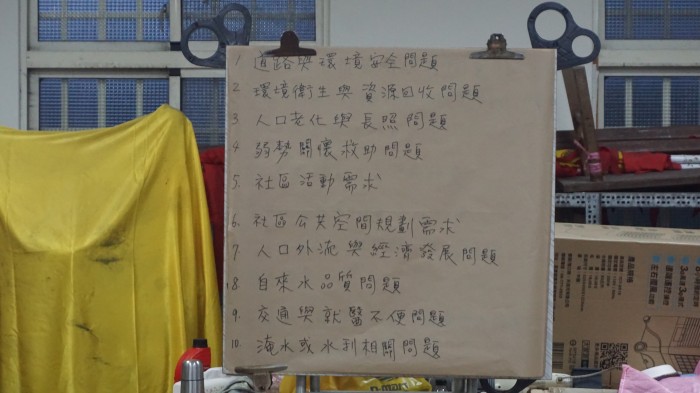 1. 道路與環境安全問題
2. 環境衛生與資源回收問題
3. 人口老化與長照問題
4. 弱勢關懷救助問題
5. 社區活動需求
6. 社區公共空間規劃需求
7. 人口外流與經濟發展問題
8. 自來水品質問題
9. 交通與就醫不便問題
10. 淹水或水利相關問題